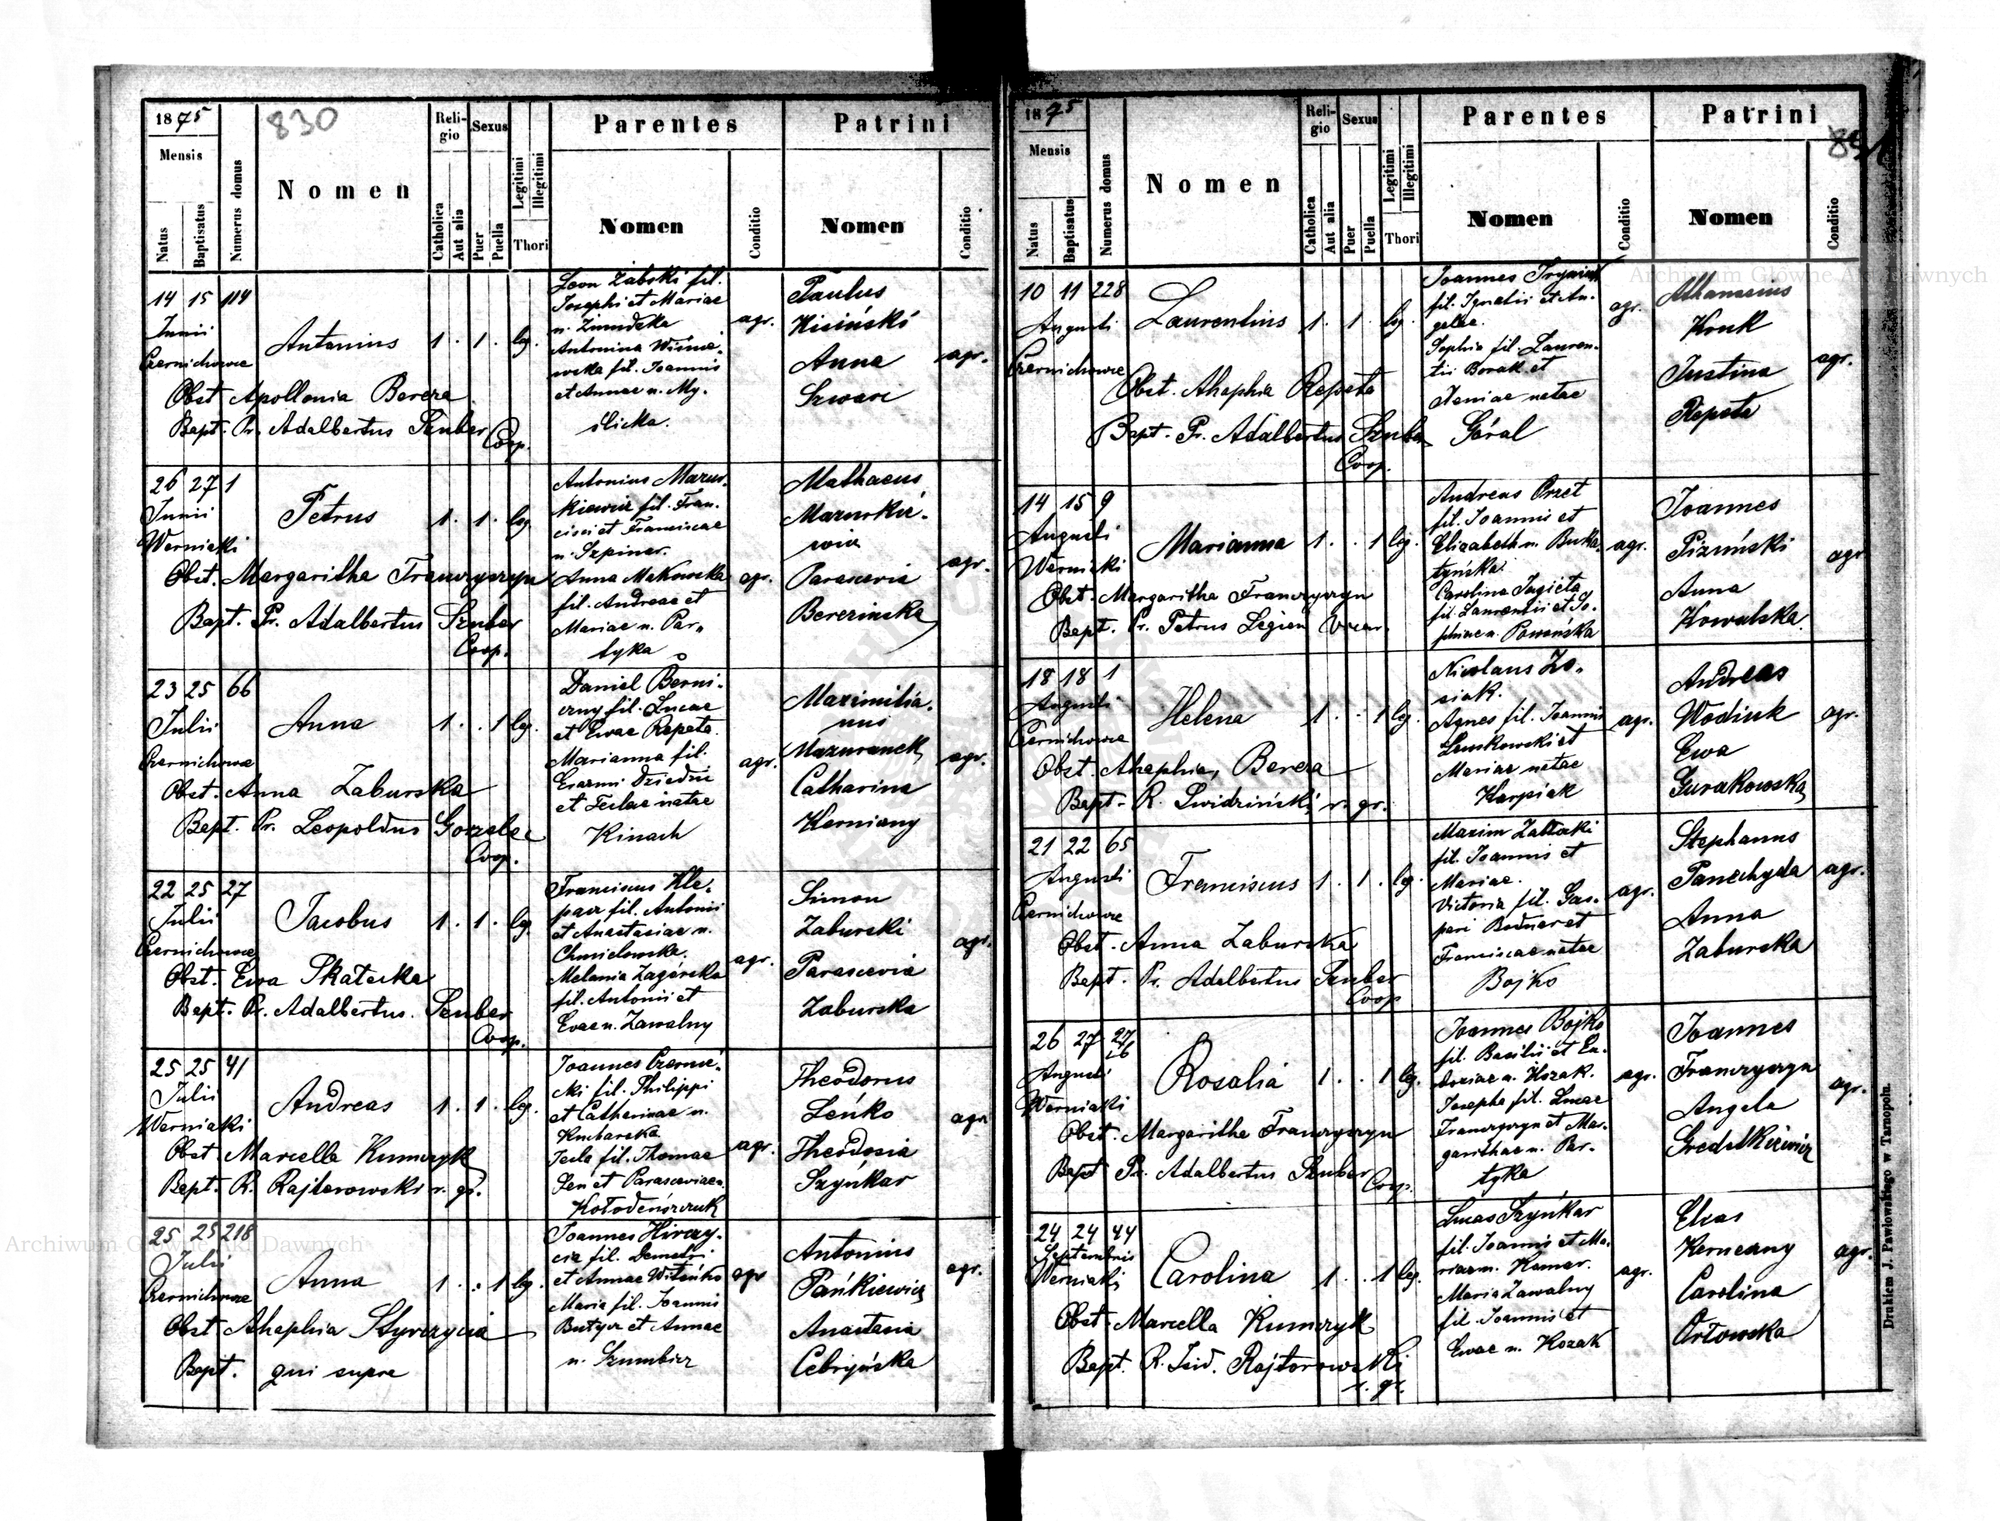 1875
830
Mensis
Natus
Baptisatus
Numerus domus
Nomen
Reli-
gio
Catholica
Aut alia
Sexus
Puer
Puella
Legitimi
Illegitimi
Thori
Parentes
Nomen
Conditio
Patrini
Nomen
Conditio
14 15 114
Junii
Czernichowce
Antonius 1. 1. leg.
Obst. Apollonia Bereza
Bapt. Pr. Adalbertus Szuber
Coop.
Leon Zabski fil.
Josephi et Mariae
Antonina Wiśnie-
wska fil. Joannis
et Annae n. My-
ślicka.
agr.
Paulus
Anna
agr.
26 27 1
Junii
Werniaki
Petrus 1. 1. leg.
Obst. Margaritha Franczyszyn
Bapt. Pr. Adalbertus Szuber
Coop.
Antonius Mazur-
kiewicz fil. Fran-
cisci et Franciscae
n. Szpinar.
Anna Makowska
fil. Andreae et
Mariae n. Par-
tyka
agr.
Mathaeus
Mazurkie-
wicz
Parascevia
Berezinska
agr.
23 25 66
Julii
Czernichowce
Anna 1. . 1 leg.
Obst. Anna Zaburska
Bapt. Pr. Leopoldus Gorzelec
Coop.
Daniel Berni-
czny fil. Lucae
et Evae Repeta.
Marianna fil.
Erazmi Dziedzic
et Teclae natae
Kinach
agr.
Maximilia-
nus
Mazuranek
Catharina
Kerniany
agr.
22 25 27
Julii
Czernichowce
Jacobus 1. 1. leg.
Obst. Ewa Skalecka
Bapt. Pr. Adalbertus Szuber
Coop.
Franciscus Kle-
pacz fil. Antonii
et Anastasiae n.
Chmielowska.
Melania Zagórska
fil. Antonii et
Evae n. Zawalny
agr.
Simon
Zaburski
Parascevia
Zaburska
agr.
25 25 41
Julii
Werniaki
Andreas 1. 1. leg.
Obst. Marcella Kumczyk
Bapt. R. Rajtarowski r. gr.
Joannes Czernie-
cki fil. Philippi
et Catharinae n.
Kucharska
Tecla fil. Thomae
Sen et Parasceviae n.
Kołodeńszczuk
agr.
Theodorus
Leńko
Theodosia
Szyńkar
agr.
25 25 218
Julii
Czernichowce
Anna 1. . 1 leg.
Obst. Ahaphia Styrczycia
Bapt. qui supra
fil. Demetri
et Annae Witeńko
Maria fil. Joannis
Butyar et Annae
n. Szumbier
agr.
Antonius
Pańkiewicz
Anastasia
Cebryńska
agr.
1875
831
Mensis
Natus
Baptisatus
Numerus domus
Nomen
Reli-
gio
Catholica
Aut alia
Sexus
Puer
Puella
Legitimi
Illegitimi
Thori
Parentes
Nomen
Conditio
Patrini
Nomen
Conditio
10 11 228
Augusti
Czernichowce
Laurentius 1. 1. leg.
Obst. Ahaphia Repeta
Bapt. Pr. Adalbertus Szuber
Coop.
Joannes
fil. Ignatii et An-
gelae.
Sophia fil. Lauren-
tii Borak et
Xeniae natae
Góral
agr.
Athanasius
Kruk
Justina
Repeta
agr.
14 15 9
Augusti
Werniaki
Marianna 1. . 1 leg.
Obst. Margaritha Franczyszyn
Bapt. Pr. Petrus Légien
Andreas Orzet
fil. Joannis et
Elizabeth n. Buka-
tyńska.
Carolina Jagieta
fil. Laurentii et So-
phiae n. Powońska
agr.
Joannes
Piziński
Anna
Kowalska.
agr.
18 18 1
Augusti
Czernichowce
Helena 1. . 1 leg.
Obst. Ahaphia Bereza
Bapt. R. Swidziński r. gr.
Nicolaus Zo-
siak.
Agnes fil. Joannis
Lenskowski et
Mariae natae
Karpiak
agr.
Andreas
Wodiuk
Ewa
Gurakowska
agr.
21 22 65
Augusti
Czernichowce
Franciscus 1. 1. leg.
Obst. Anna Zaburska
Bapt. Pr. Adalbertus Szuber
Coop
Maxim Zabłocki
fil. Joannis et
Mariae.
Victoria fil. Gas-
pari Bednar et
Franciscae natae
Bojko
agr.
Stephanus
Panachyda
Anna
Zaburska
agr.
26 27 27/26
Augusti
Werniaki
Rosalia 1. . 1 leg.
Obst. Margaritha Franczyszyn
Bapt. Pr. Adalbertus Szuber
Coop.
Joannes Bojko
fil. Basilii et Eu-
doxiae n. Kozak.
Josepha fil. Lucae
Franczyszyn et Mar-
garithae n. Par-
tyka
agr.
Joannes
Franczyszyn
Angela
Gredelkiewicz
agr.
24 24 44
Septembris
Werniaki
Carolina 1. . 1 leg.
Obst. Marcella Kumczyk
Bapt. R. Isid. Rajtarowski
r. gr.
Lucas Szyńkar
fil. Joannis et Ma-
riae n. Komar.
Maria Zawalny
fil. Joannis et
Evae n. Kozak
agr.
Elias
Kerneany
Carolina
Orłowska
agr.
Drukiem J. Pawłowskiego w Tarnopolu.
Archiwum Główne Akt Dawnych
Archiwum Główne Akt Dawnych